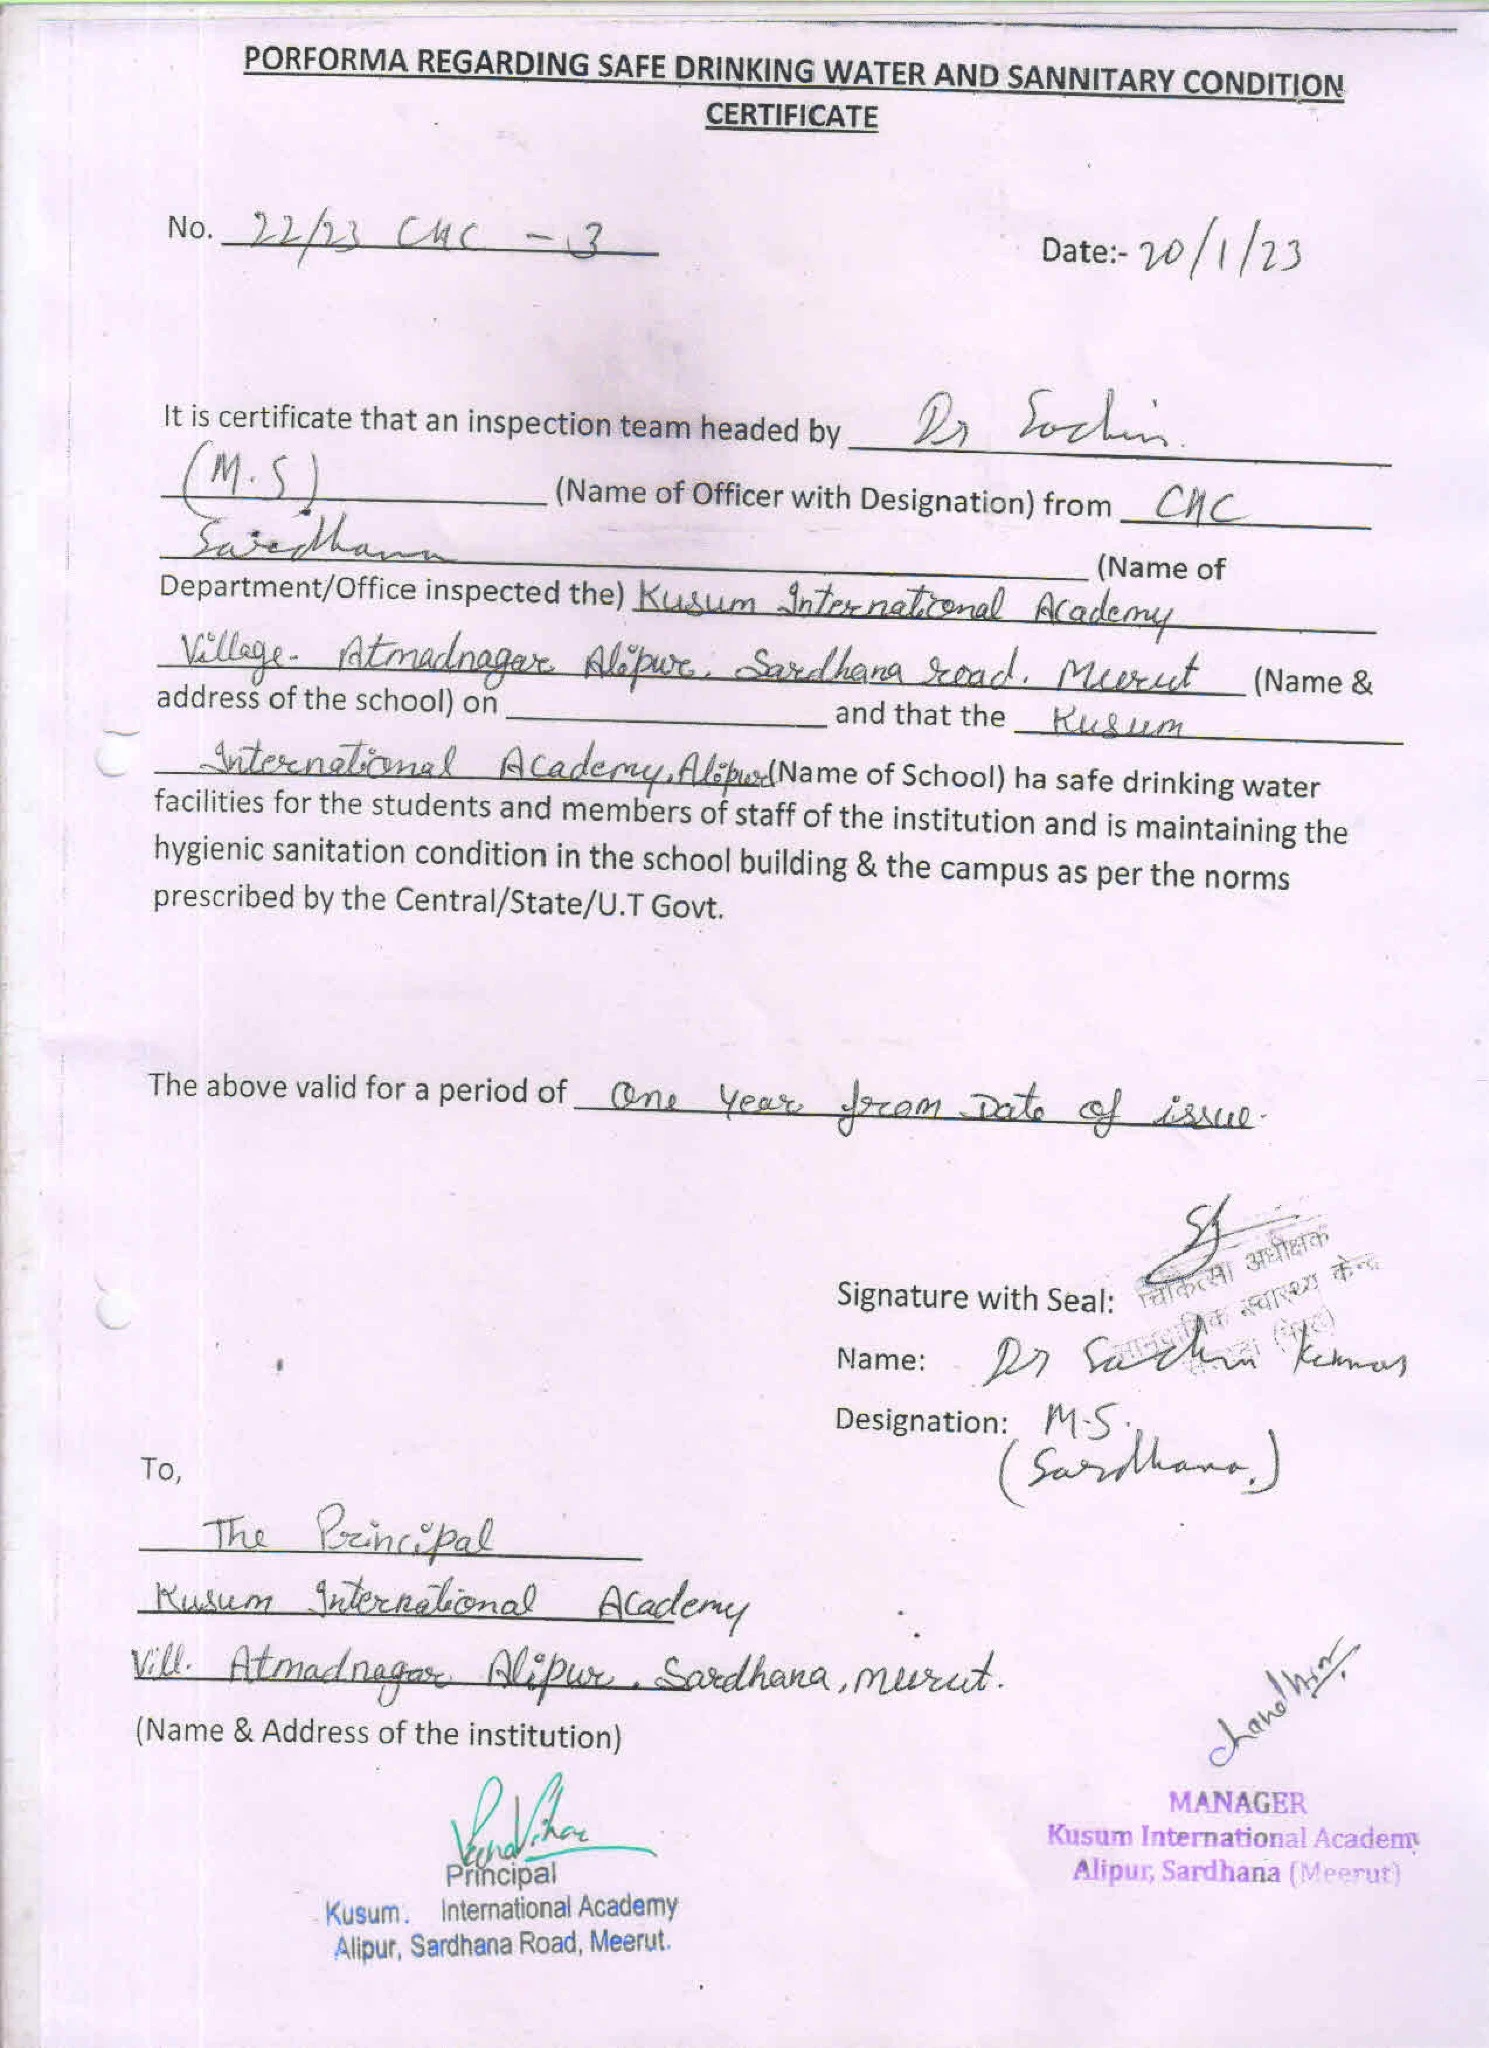 PORFORMA REGARDING SAFE DRINKING WATER AND SANNITARY CONDITION
CERTIFICATE
No. 22/23 CHC - 3
Date:- 20/1/23
It is certificate that an inspection team headed by Dr Sachin
(M.S) (Name of Officer with Designation) from CHC
Sardhana (Name of
Department/Office inspected the) Kusum International Academy
Village- Atmadnagar Alipur, Sardhana road, Meerut (Name &
address of the school) on ____ and that the Kusum
International Academy, Alipur (Name of School) ha safe drinking water
facilities for the students and members of staff of the institution and is maintaining the
hygienic sanitation condition in the school building & the campus as per the norms
prescribed by the Central/State/U.T Govt.
The above valid for a period of One year from Date of issue.
Signature with Seal:
चिकित्सा अधीक्षक
स्वास्थ्य केन्द्र
Name: Dr Sachin Kumar
Designation: M.S.
(Sardhana.)
To,
The Principal
Kusum International Academy
Vill. Atmadnagar Alipur, Sardhana, Meerut.
(Name & Address of the institution)
Principal
Kusum. International Academy
Alipur, Sardhana Road, Meerut.
MANAGER
Kusum International Academy
Alipur, Sardhana (Meerut)